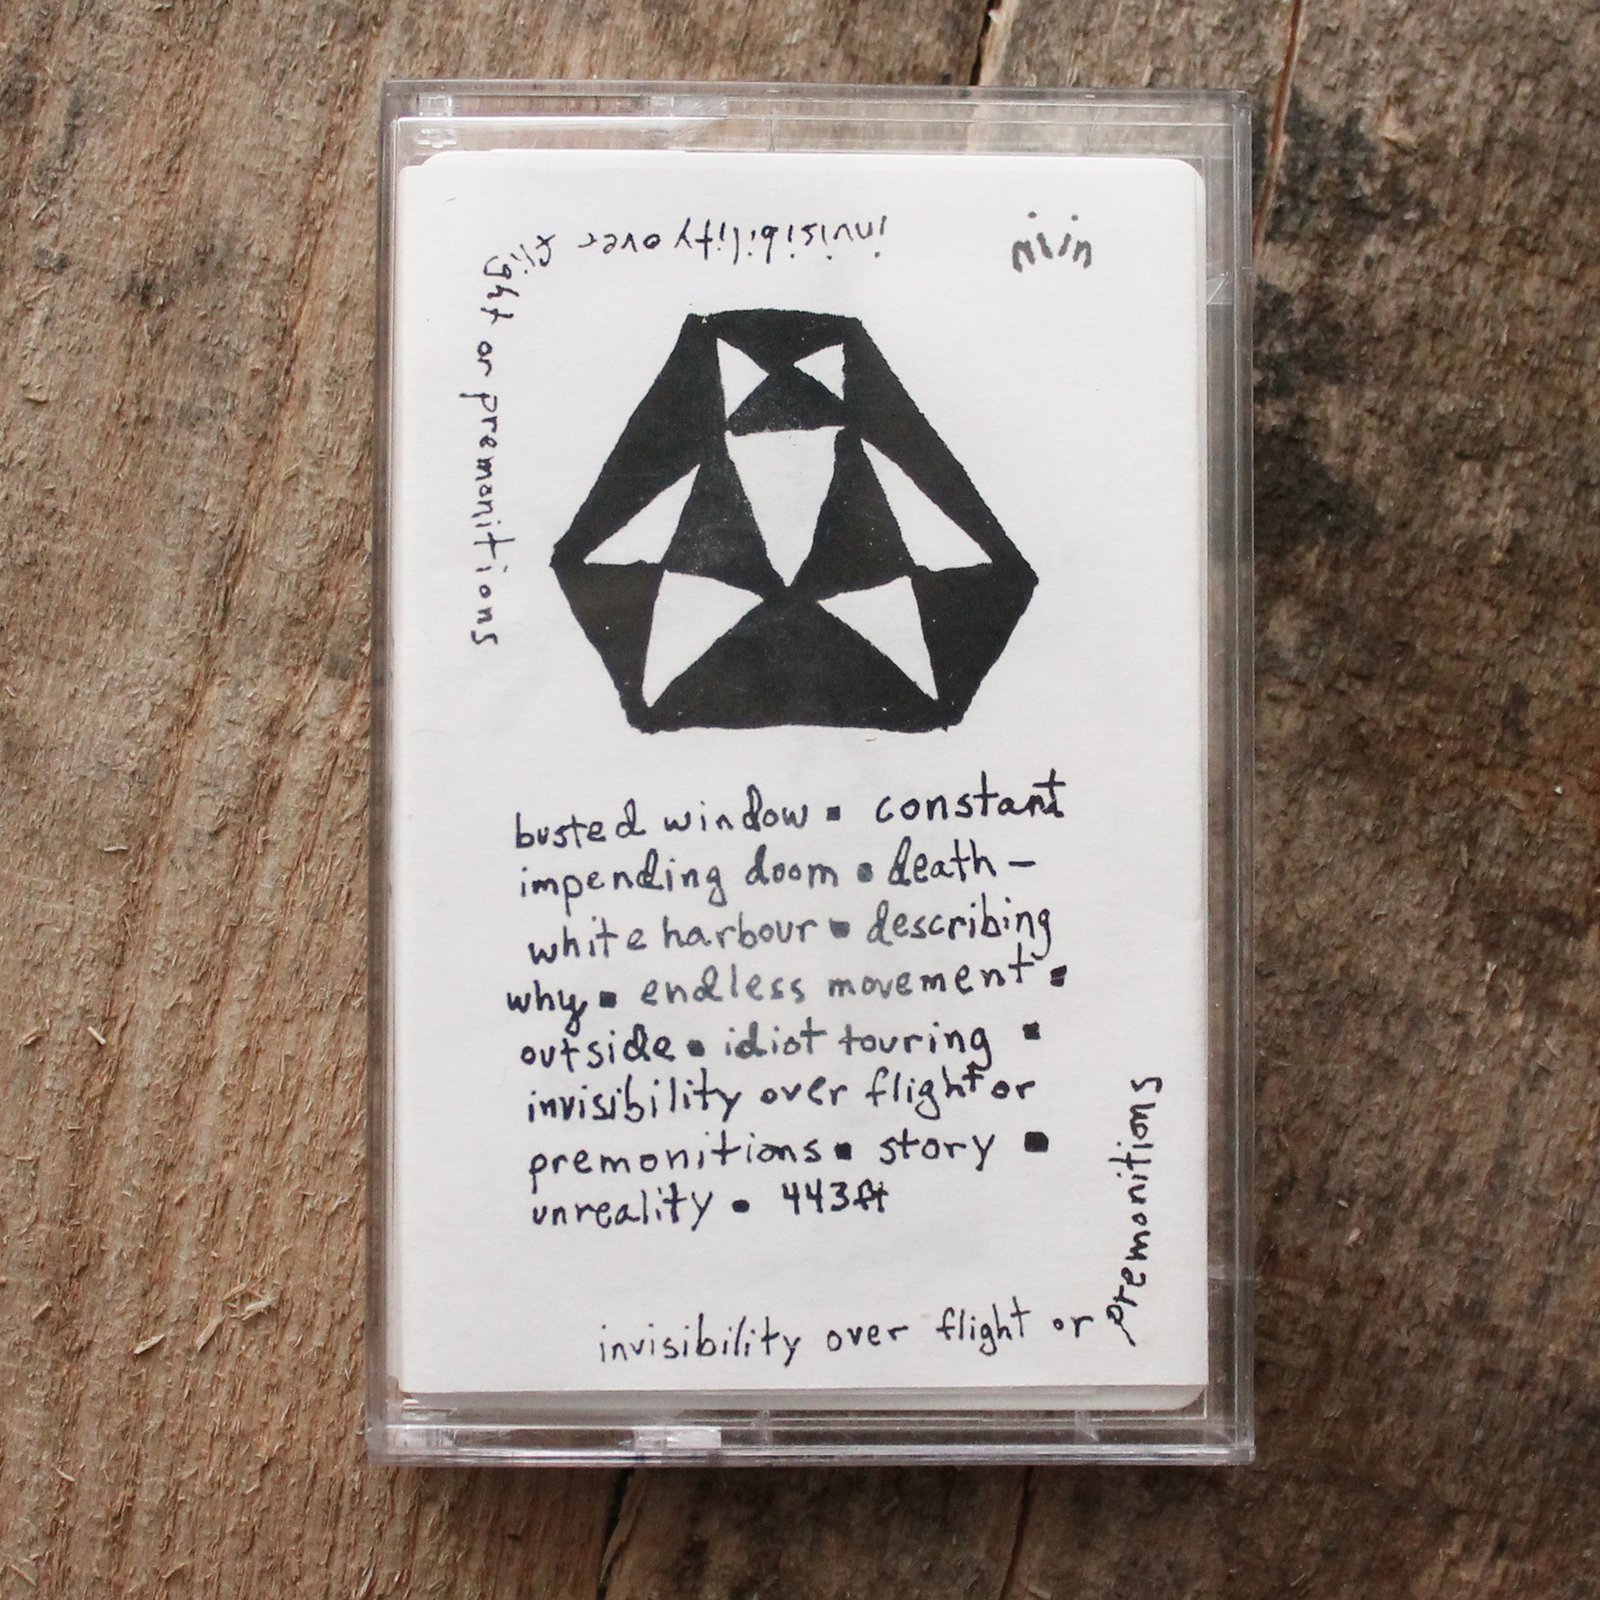 invisibility over flight or premonitions
niin
busted window ▪ constant
impending doom ▪ death-
white harbour ▪ describing
why ▪ endless movement ▪
outside ▪ idiot touring ▪
invisibility over flight or
premonitions ▪ story ▪
unreality ▪ 443ft
invisibility over flight or premonitions